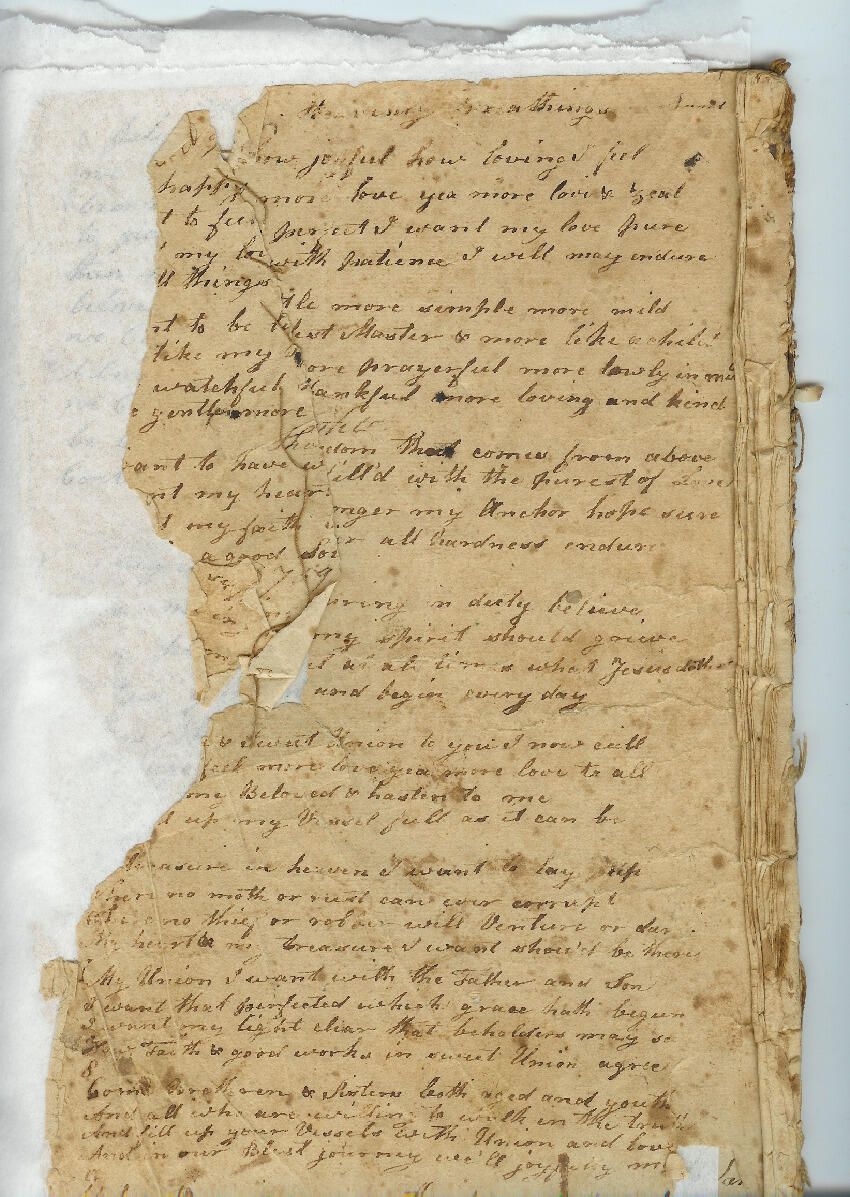 Heavenly Breathings
how joyful how loving I feel
happy more love yea more love & zeal
t to feel perfect I want my love pure
my lo with patience I will may endure
ll things
tle more simple more mild
nt to be est Master & more like a child
like my ore prayerful more lowly in
watchful hankful more loving and kind
gentle more
ant to have wi sdom that comes from above
nt my heart ill'd with the purest of Love
my faith onger my Anchor hope sure
a good sol er all hardness endure
uring in duty believe
my spirit should grieve
at all times what Jesus doth
and begin every day
& sweet Union to you I now call
feel more love yea more love to all
my Beloved & hasten to me
up my Vessel full as it can be
treasure in heaven I want to lay up
where no moth or rust can ever corrupt
no thief or robber will Venture or dar
My heart & my treasure I want should be there
My Union I want with the Father and Son
I want that perfected which grace hath begun
I want my light clear that beholders may se
How Faith & good works in sweet Union agree
8
Come Bretheren & Sisters both aged and youth
And all who are willing to walk in the truth
And fill up your Vessels with Union and love
And in our Blest journey we'll joyfully